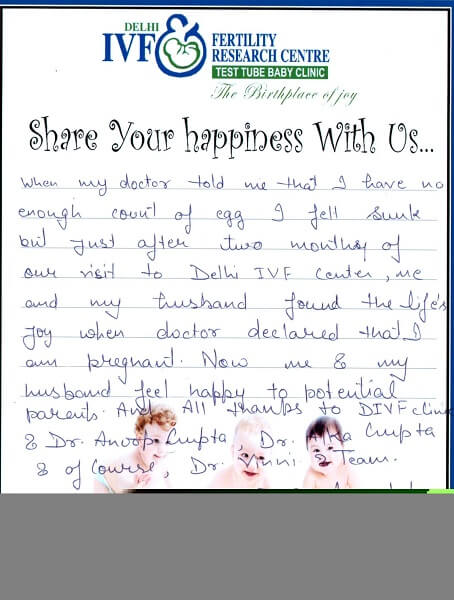 DELHI
IVF & FERTILITY
RESEARCH CENTRE
TEST TUBE BABY CLINIC
The Birthplace of joy
Share Your happiness With Us...
When my doctor told me that I have no
enough count of egg I fell sunk
but just after two months of
our visit to Delhi IVF Center, me
and my husband found the life's
joy when doctor declared that I
am pregnant. Now me & my
husband feel happy to potential
parents. And All thanks to DIVF clinic
& Dr. Anoop Gupta, Dr. Alka Gupta
& of Course, Dr. Vinni & Team.